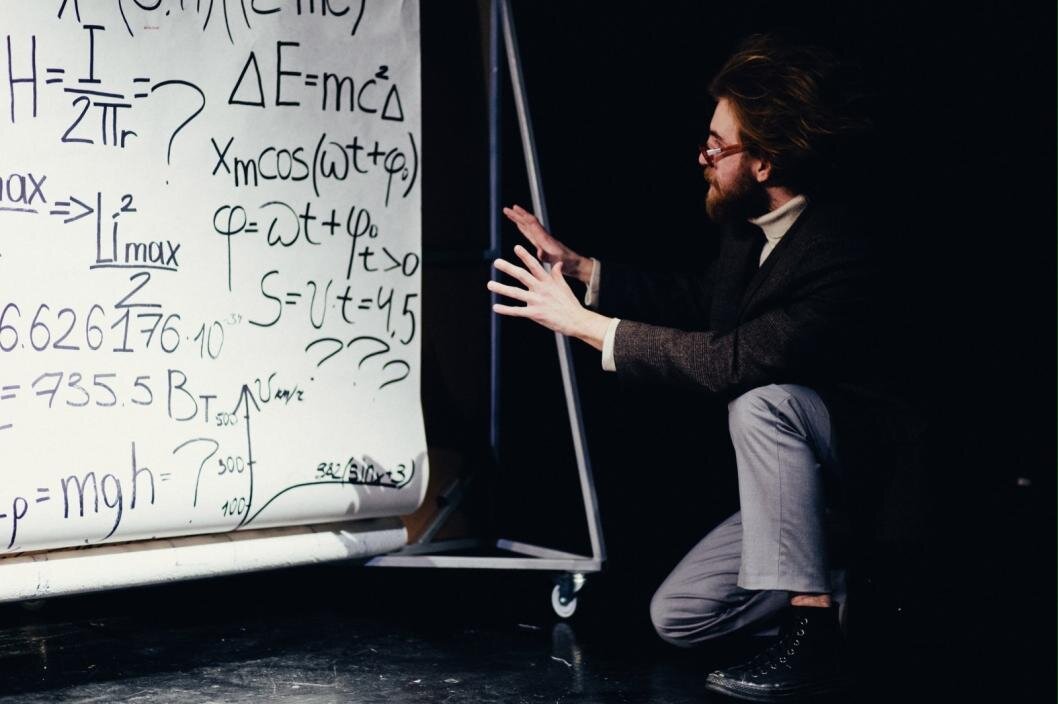 H=I/2πr=?
ΔE=mc²Δ
xmcos(ωt+φ₀)
max=>Li²max/2
φ=ωt+φ₀
t>0
S=υ·t=4,5
6.626176·10⁻³⁴
???
=735.5 Вт
υ км/г
500
300
100
382(sinx+3)
p=mgh=?